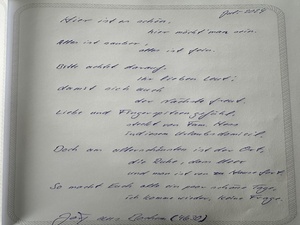 Juli 2024
Hier ist es schön,
hier möcht man sein.
Alles ist sauber,
alles ist fein.
Bitte achtet darauf,
ihr lieben Leut,
damit sich auch
der Nächste freut.
Liebe und Fingerspitzengefühl
steckt von Fam.
in diesem Urlaubsdomizil.
Doch am allerschönsten ist der Ort,
die Ruhe, das Meer
und man ist von zu Hause fort.
So macht Euch alle ein paar schöne Tage,
ich komme wieder, keine Frage.
Jörg aus